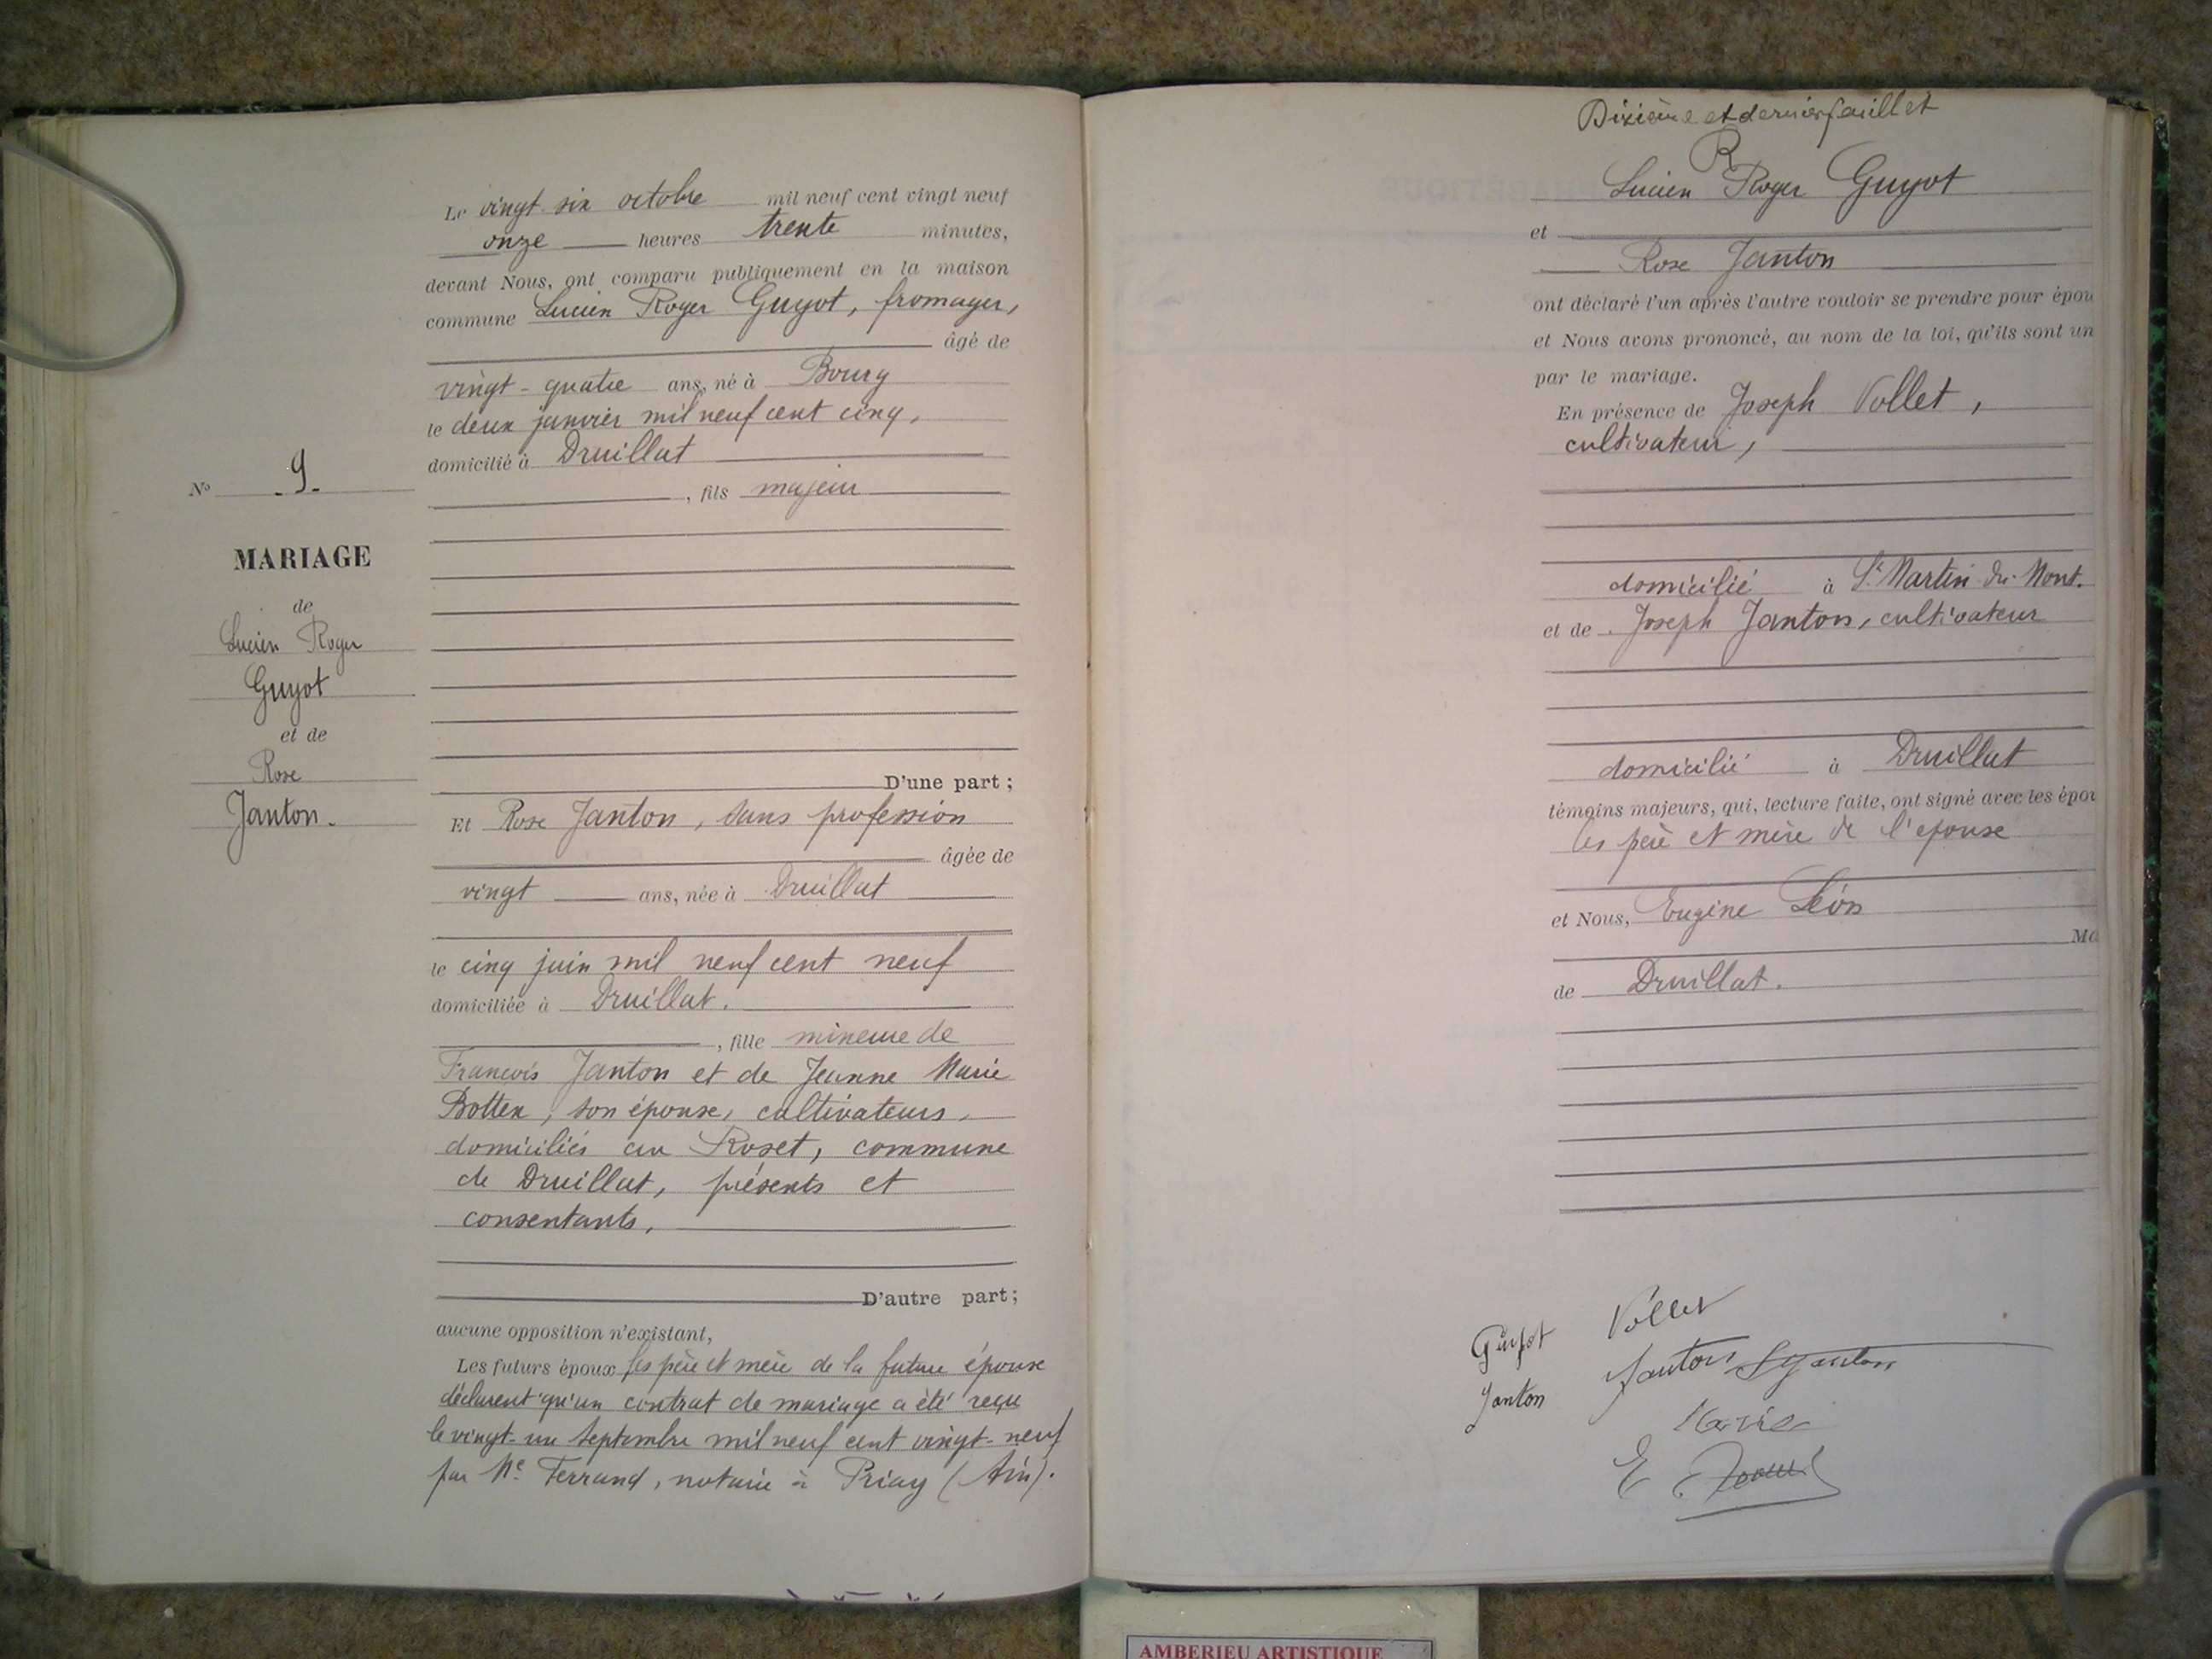 Le vingt-six octobre mil neuf cent vingt neuf
onze heures trente minutes,
devant Nous, ont comparu publiquement en la maison
commune Lucien Roger Guyot, fromager,
âgé de
vingt-quatre ans, né à Bourg
le deux janvier mil neuf cent cinq,
domicilié à Druillat
, fils majeur
D'une part;
Et Rose Janton, sans profession
âgée de
vingt ans, née à Druillat
le cinq juin mil neuf cent neuf
domiciliée à Druillat.
, fille mineure de
Francois Janton et de Jeanne Marie
Bottex, son épouse, cultivateurs,
domiciliés au Roset, commune
de Druillat, présents et
consentants,
D'autre part;
aucune opposition n'existant,
Les futurs époux les père et mère de la future épouse
déclarent qu'un contrat de mariage a été reçu
le vingt-un septembre mil neuf cent vingt-neuf
par Me Ferrand, notaire à Priay (Ain).
No 9.
MARIAGE
de
Lucien Roger
Guyot
et de
Rose
Janton.
Dixième et dernier feuillet
R
Lucien Roger Guyot
et
Rose Janton
ont déclaré l'un après l'autre vouloir se prendre pour épou
et Nous avons prononcé, au nom de la loi, qu'ils sont un
par le mariage.
En présence de Joseph Vollet,
cultivateur,
domicilié à St Martin-du-Mont.
et de Joseph Janton, cultivateur
domicilié à Druillat
témoins majeurs, qui, lecture faite, ont signé avec les épou
les père et mère de l'épouse
et Nous, Eugène Léon
Ma
de Druillat.
Guyot Vollet
Janton Janton
E
AMBERIEU ARTISTIQUE